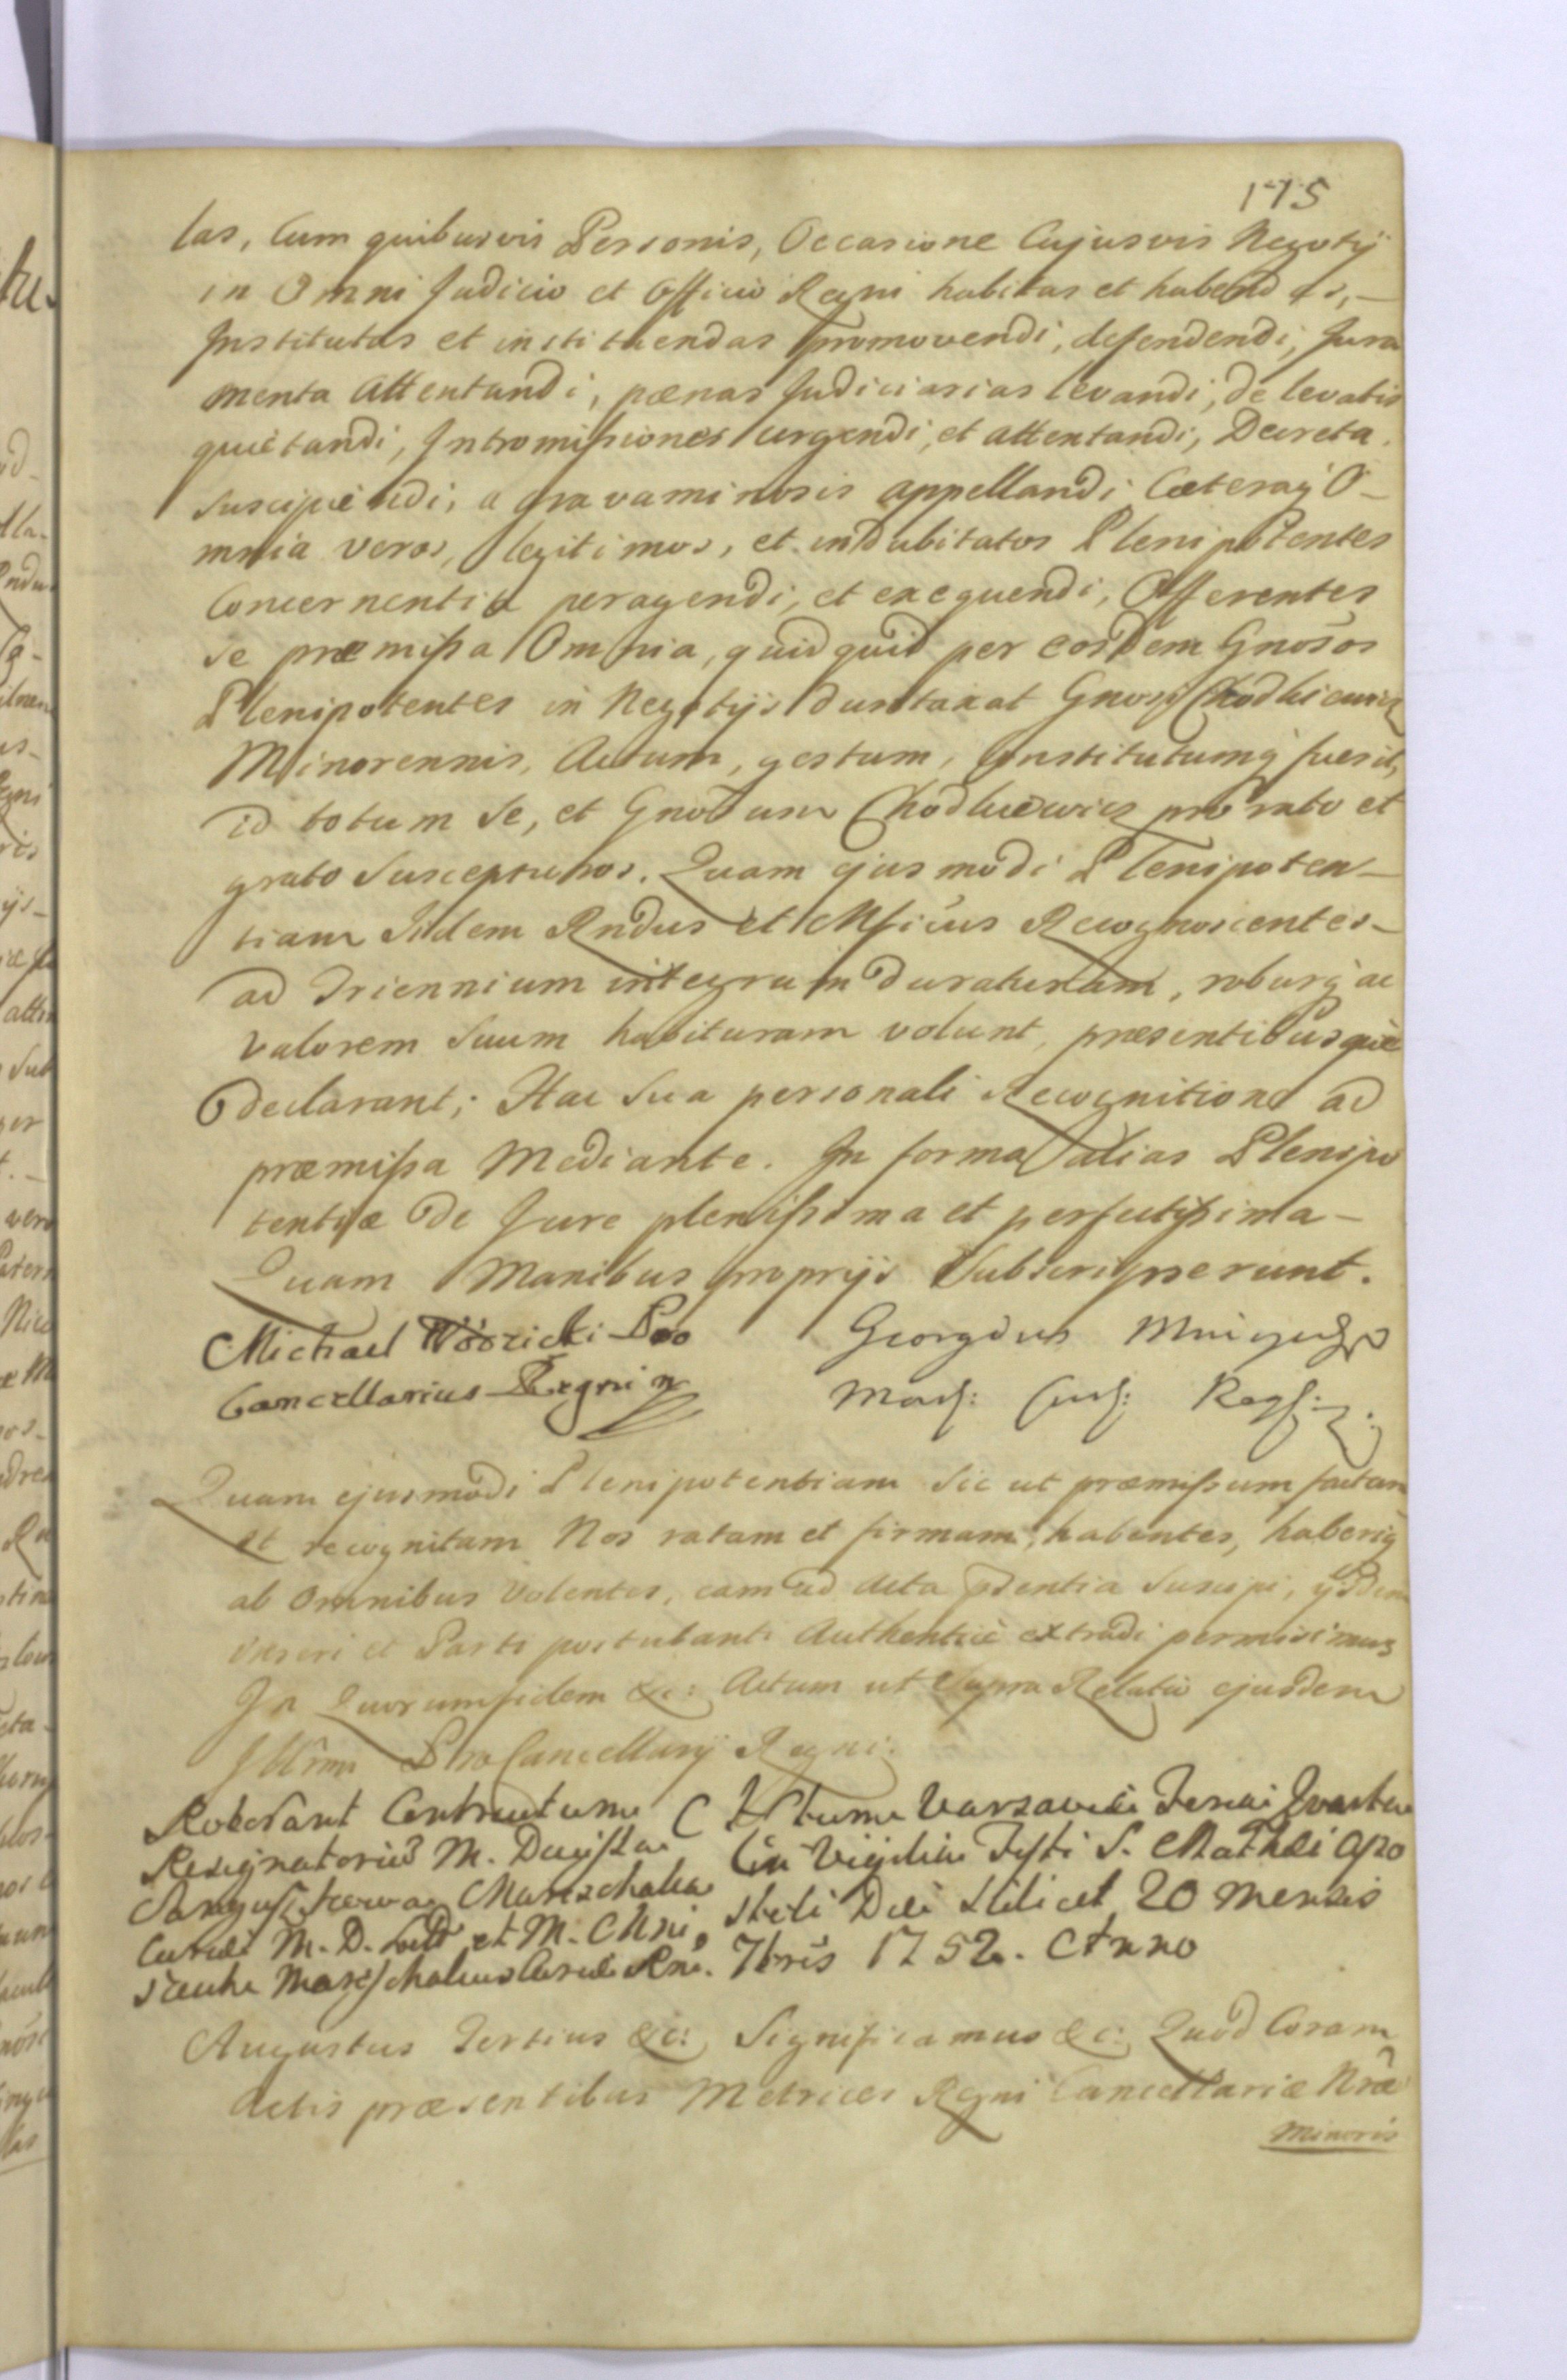 175
las, Cum quibusvis Personis, Occasione Cujusvis Negotij
in Omni Judicio et Officio Regni habitas et habendas,
Institutas et instituendas promovendi, defendendi, Jura
menta Attentandi, pænas Judiciarias levandi, de levatis
quiėtandi, Intromissiones urgendi, et attentandi, Decreta
suscipiėndi, a gravaminosis appellandi Cæteraq̀ O-
mnia veros, legitimos, et indubitatos Plenipotentes
Concernentia peragendi, et exequendi, Offerentes
se præmissa Omnia, quidquid per eosdem Gnosos
Plenipotentes in Negotijs duntaxat Gnosi Chodkiewicz
Minorennis, Actum, gestum, Constitutumq̀ fuerit,
id totum Se, et Gnosum Chodkiewicz pro rato et
grato Suscepturos. Quam ejusmodi Plenipoten-
tiam Iidem Rndus et Mficus Recognoscentes-
ad Triennium integrum duraturam, roburq̀ ac
valorem Suum habituram volunt, præsentibusquè
declarant; Hac Sua personali Recognitione ad
præmissa Mediante. In forma alias Plenipo
tentiæ de Jure plenissima et perfectissima-
Quam Manibus proprijs Subscripserunt.
Michael Wodzicki Pro Georgius Mniszech
Cancellarius Regni Mars: Curs: Regs:
Quam ejusmodi Plenipotentiam Sic ut præmissum factam
et recognitam Nos ratam et firmam habentes, haberiq̀
ab Omnibus Volentes, eam ad Acta pñentia Suscipi, ysdem
inseri et Parti postulanti Authenticè extradi permisimus
In Quorum fidem &c: Actum ut Supra Relatio ejusdem
Illrmi Pro Cancellarij Regni.
Roborant Contractum Actum Varsaviæ Feria Quarta
Resignatorium M. Ducissa In Vigilia Festi S. Mathæi Apo
Sanguszkowa Marschalca stoli Die Scilicet 20 Mensis
Curiæ M. D. Litt et M. Mni 7bris 1752. Anno
szech Marschalcus Curiæ Rni.
Augustus Tertius &c: Significamus &c: Quod Coram
Actis præsentibus Metrices Regni Cancellariæ Nræ
Minoris